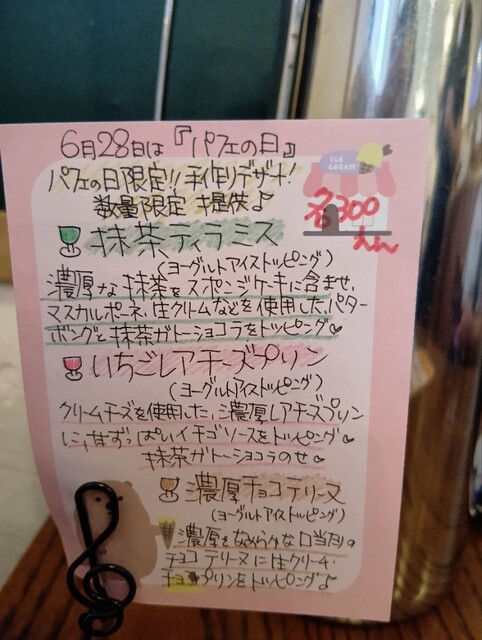 6月28日は『パフェの日』
ICE CREAM
パフェの日限定!! 手作りデザート!
数量限定 提供♪
各300えん
抹茶ティラミス
(ヨーグルトアイストッピング)
濃厚な抹茶をスポンジケーキに含ませ、
マスカルポーネ、生クリームなどを使用したバター
ボングと抹茶ガトーショコラをトッピング♡
いちごレアチーズプリン
(ヨーグルトアイストッピング)
クリームチーズを使用した、濃厚レアチーズプリン
に、甘ずっぱいイチゴソースをトッピング♡
抹茶ガトーショコラのせ♡
濃厚チョコテリーヌ
(ヨーグルトアイストッピング)
濃厚なめらかな口当りの
チョコテリーヌに生クリーム・
チョコプリンをトッピング♪